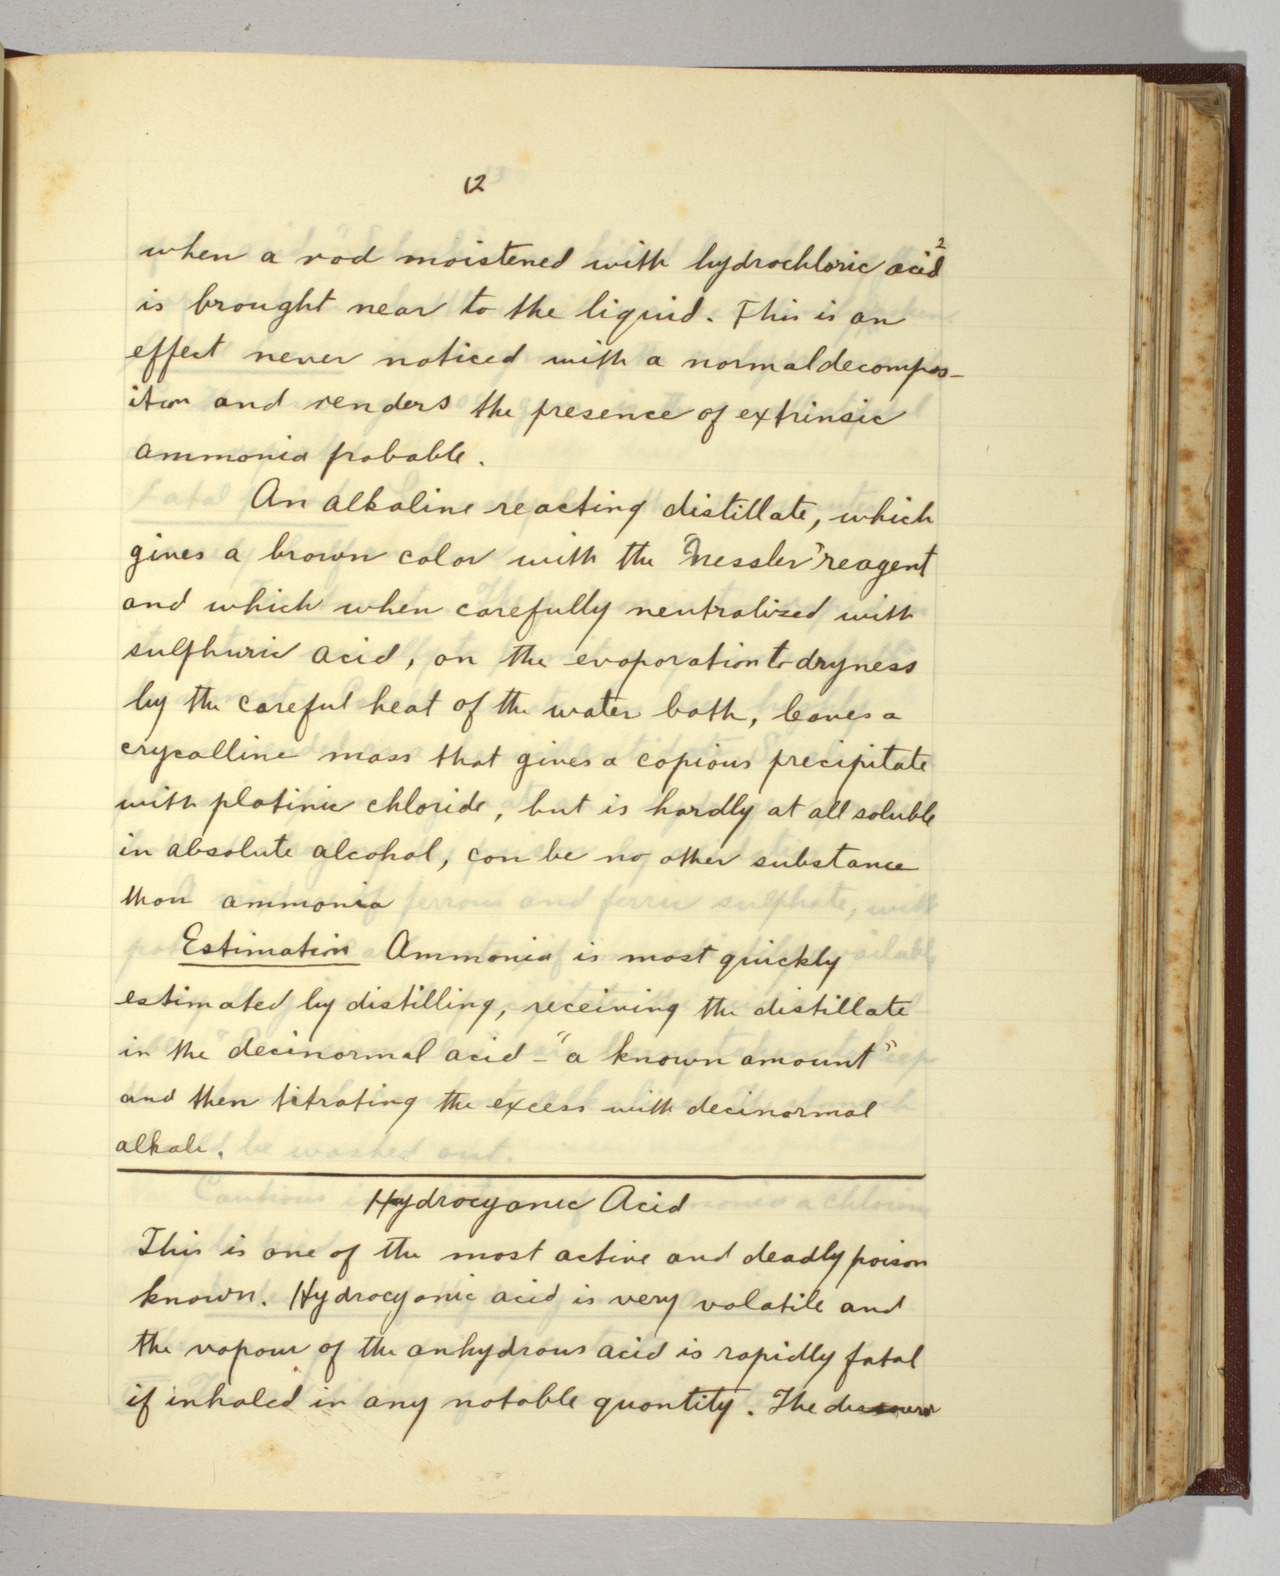 12
when a rod moistened with hydrochloric acid 2
is brought near to the liquid. This is an
effect never noticed with a normal decompos-
ition and renders the presence of extrinsic
ammonia probable.
An alkaline reacting distillate, which
gives a brown color with the "Nessler" reagent
and which when carefully neutralized with
sulphuric acid, on the evaporation to dryness
by the careful heat of the water bath, leaves a
crycalline mass that gives a copious precipitate
with platinic chloride, but is hardly at all soluble
in absolute alcohol, can be no other substance
than ammonia
Estimation Ammonia is most quickly
estimated by distilling, receiving the distillate
in the decinormal acid - "a known amount"
and then titrating the excess with decinormal
alkali.
Hydrocyanic Acid
This is one of the most active and deadly poison
known. Hydrocyanic acid is very volatile and
the vapour of the anhydrous acid is rapidly fatal
if inhaled in any notable quantity. The